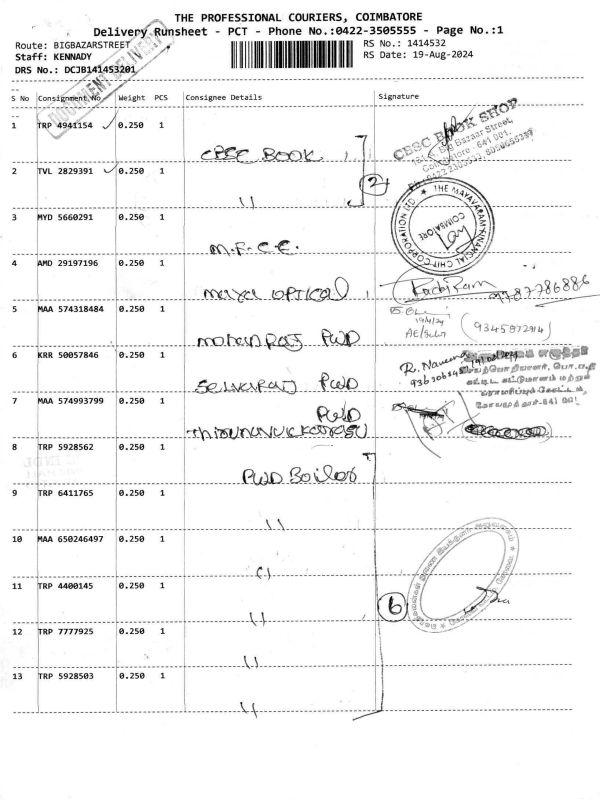 THE PROFESSIONAL COURIERS, COIMBATORE
Delivery Runsheet - PCT - Phone No.:0422-3505555 - Page No.:1
Route: BIGBAZARSTREET
RS No.: 1414532
Staff: KENNADY
RS Date: 19-Aug-2024
DRS No.: DCJB141453201
S No Consignment No Weight PCS Consignee Details Signature
1 TRP 4941154 0.250 1
CBSC BOOK
CBSC BOOK SHOP
Big Bazaar Street,
Coimbatore - 641 001.
2 TVL 2829391 0.250 1
11
2
THE MAYAVARAM FINANCIAL CHIT CORPORATION LTD
COIMBATORE
3 MYD 5660291 0.250 1
M.F.C.C.
4 AMD 29197196 0.250 1
maya OPTICAL
9387786886
5 MAA 574318484 0.250 1
19/8/24
9345872914
mohanraj PWD
6 KRR 50057846 0.250 1
Selvaraj PWD
கட்டிட கட்டுமானம் மற்றும்
பராமரிப்புக் கோட்டம்,
கோயமுத்தூர்-641 001.
7 MAA 574993799 0.250 1
PWD
Thirunavukkarasu
8 TRP 5928562 0.250 1
PWD Boiler
9 TRP 6411765 0.250 1
11
10 MAA 650246497 0.250 1
11
11 TRP 4400145 0.250 1
11
6
12 TRP 7777925 0.250 1
11
13 TRP 5928503 0.250 1
11